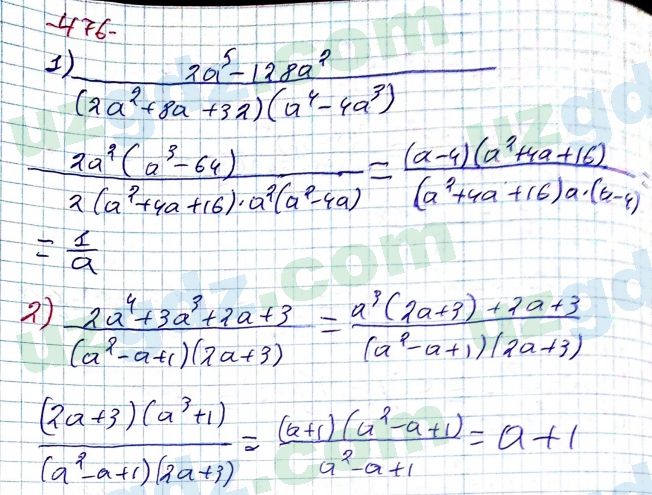 -476-
1) (2a⁵-128a²)/((2a²+8a+32)(a⁴-4a³))
(2a²(a³-64))/(2(a²+4a+16)·a²(a²-4a)) = ((a-4)(a²+4a+16))/((a²+4a+16)a·(a-4))
= 1/a
2) (2a⁴+3a³+2a+3)/((a²-a+1)(2a+3)) = (a³(2a+3)+2a+3)/((a²-a+1)(2a+3))
((2a+3)(a³+1))/((a²-a+1)(2a+3)) = ((a+1)(a²-a+1))/(a²-a+1) = a+1
uzgdz.com